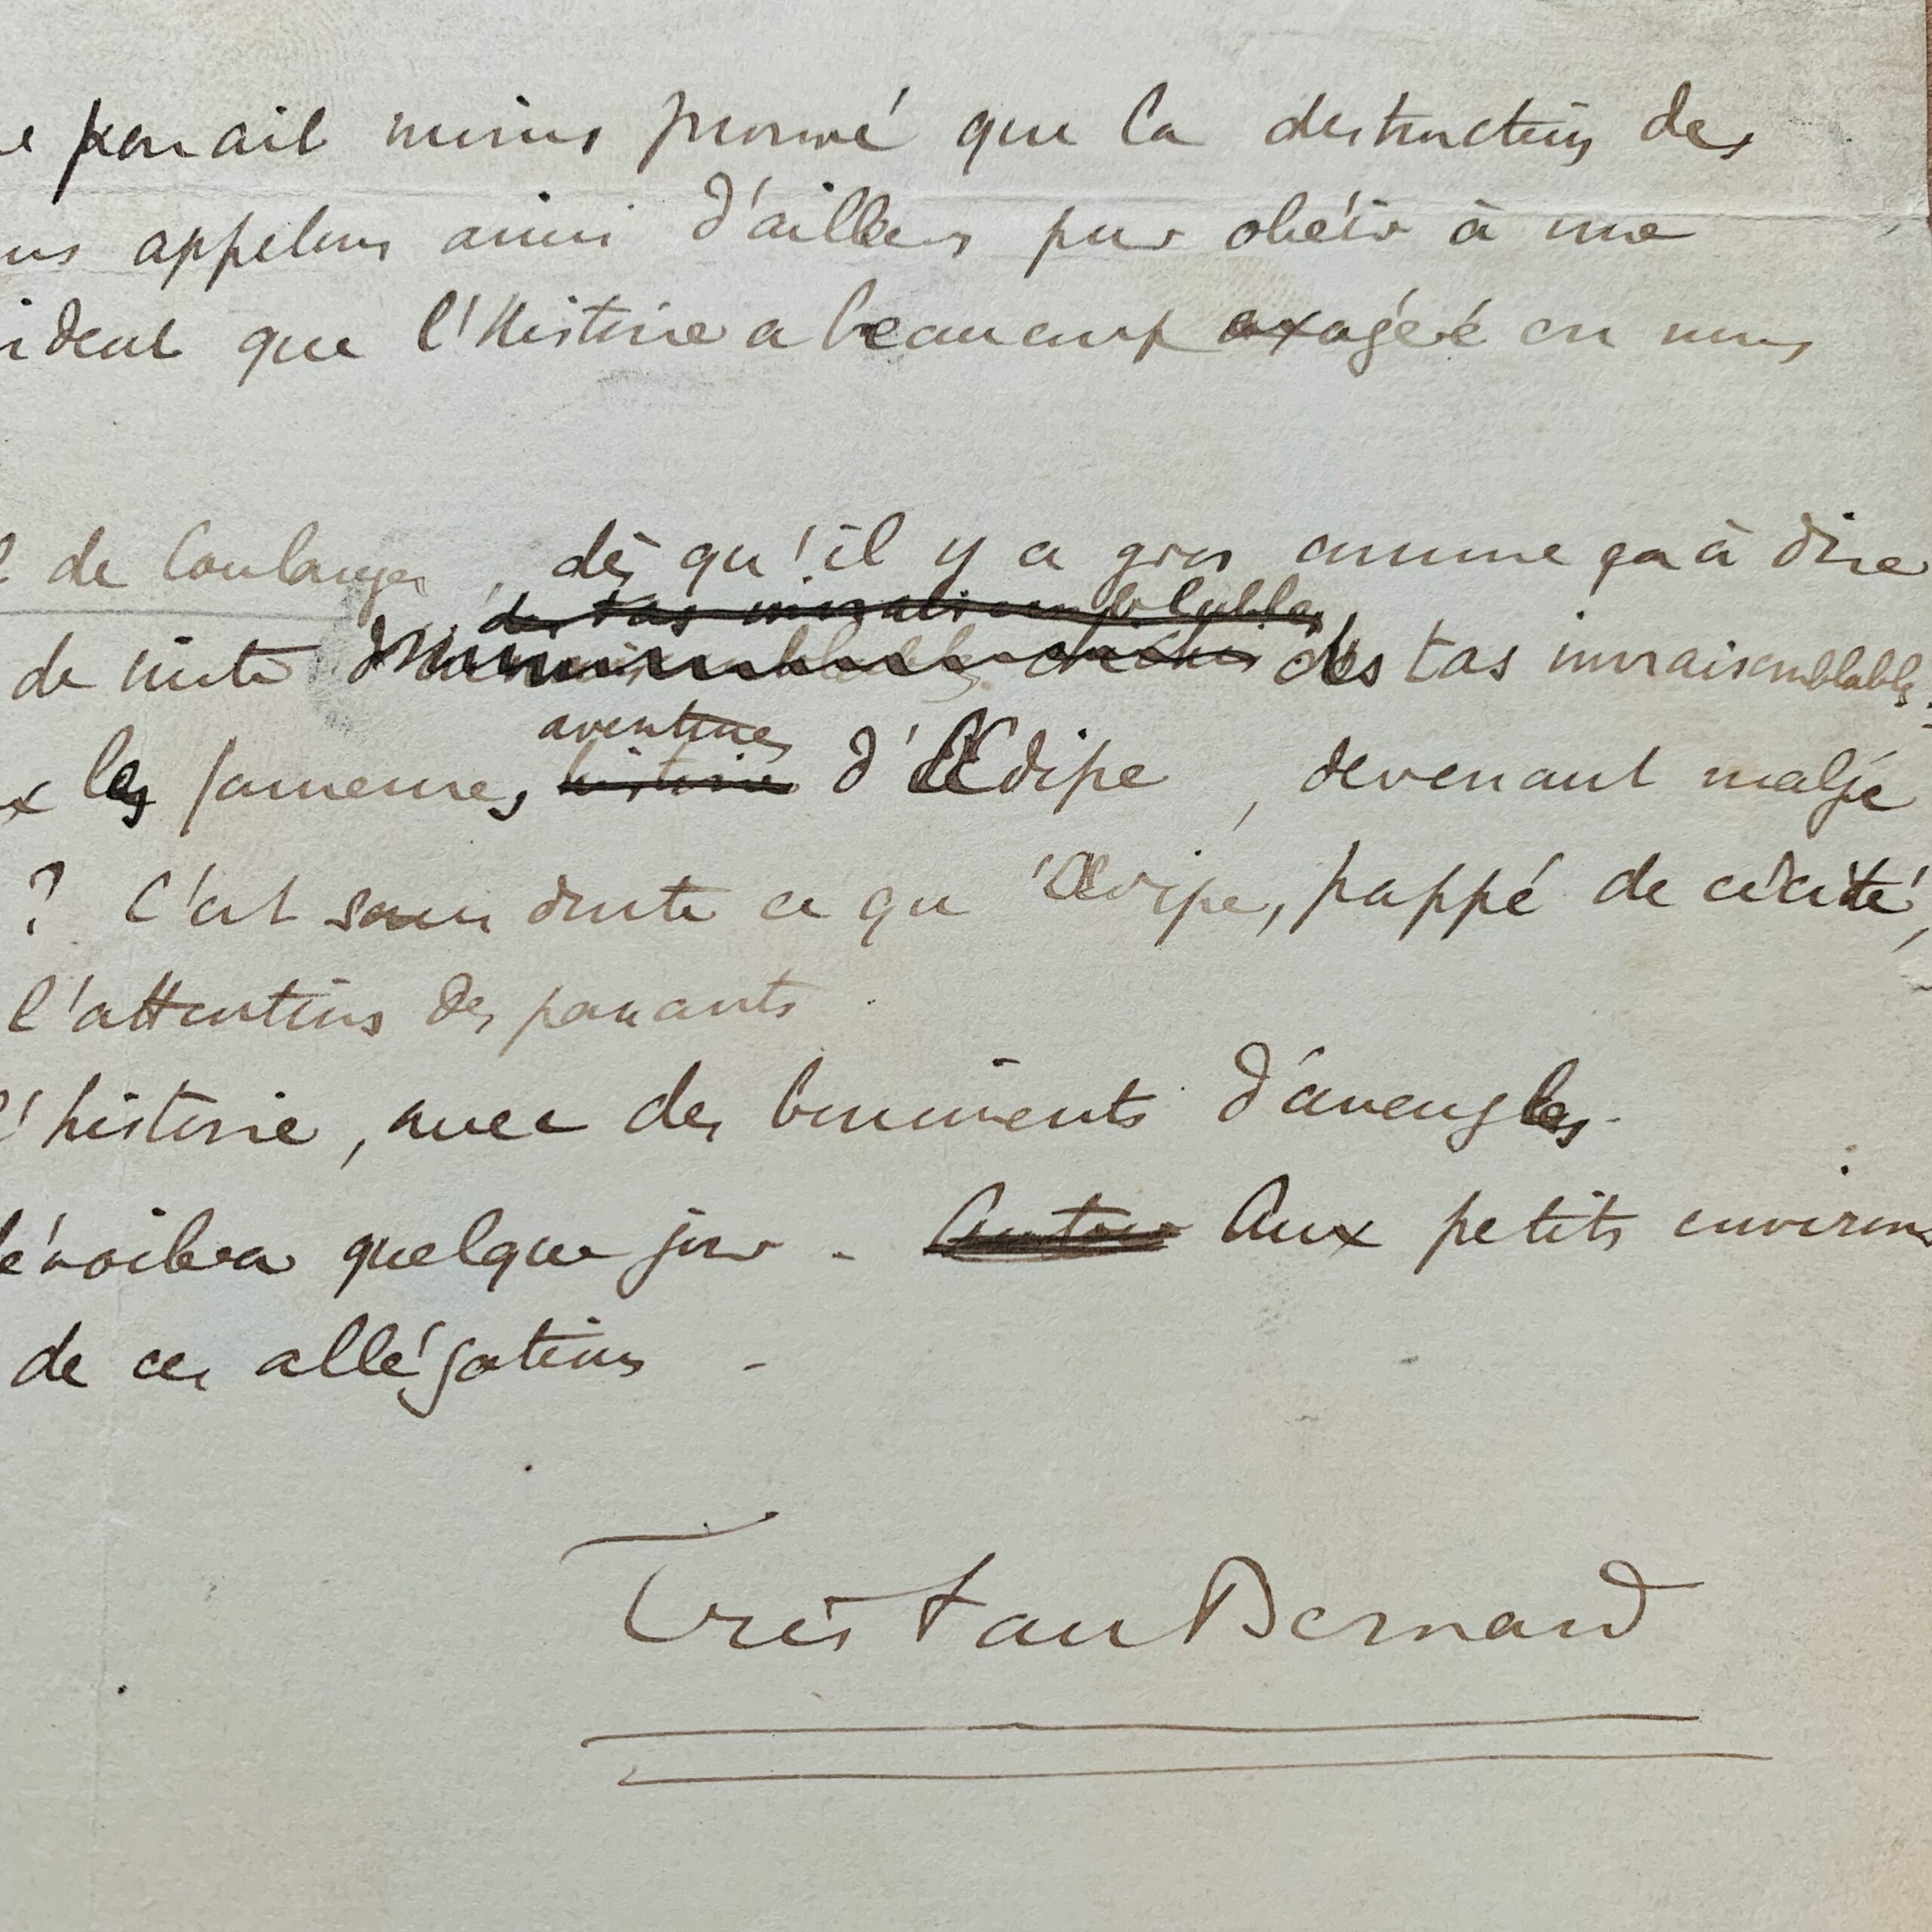 e paraît moins prouvé que la destruction des
us appelons ainsi d'ailleurs pour obéir à une
ident que l'Histoire a beaucoup exagéré en nous
l de Coulanges, dès qu'il y a gros comme ça à dire
des tas invraisemblables
de suite des tas invraisemblables
aventures
x les fameuses histoires d'Œdipe, devenant malgré
? C'est sans doute ce qu'Œdipe, frappé de cécité,
l'attention des passants.
l'histoire, avec des boniments d'aveugles.
dévoilera quelque jour - Autour Aux petits environs
de ces allégations -
Tristan Bernard